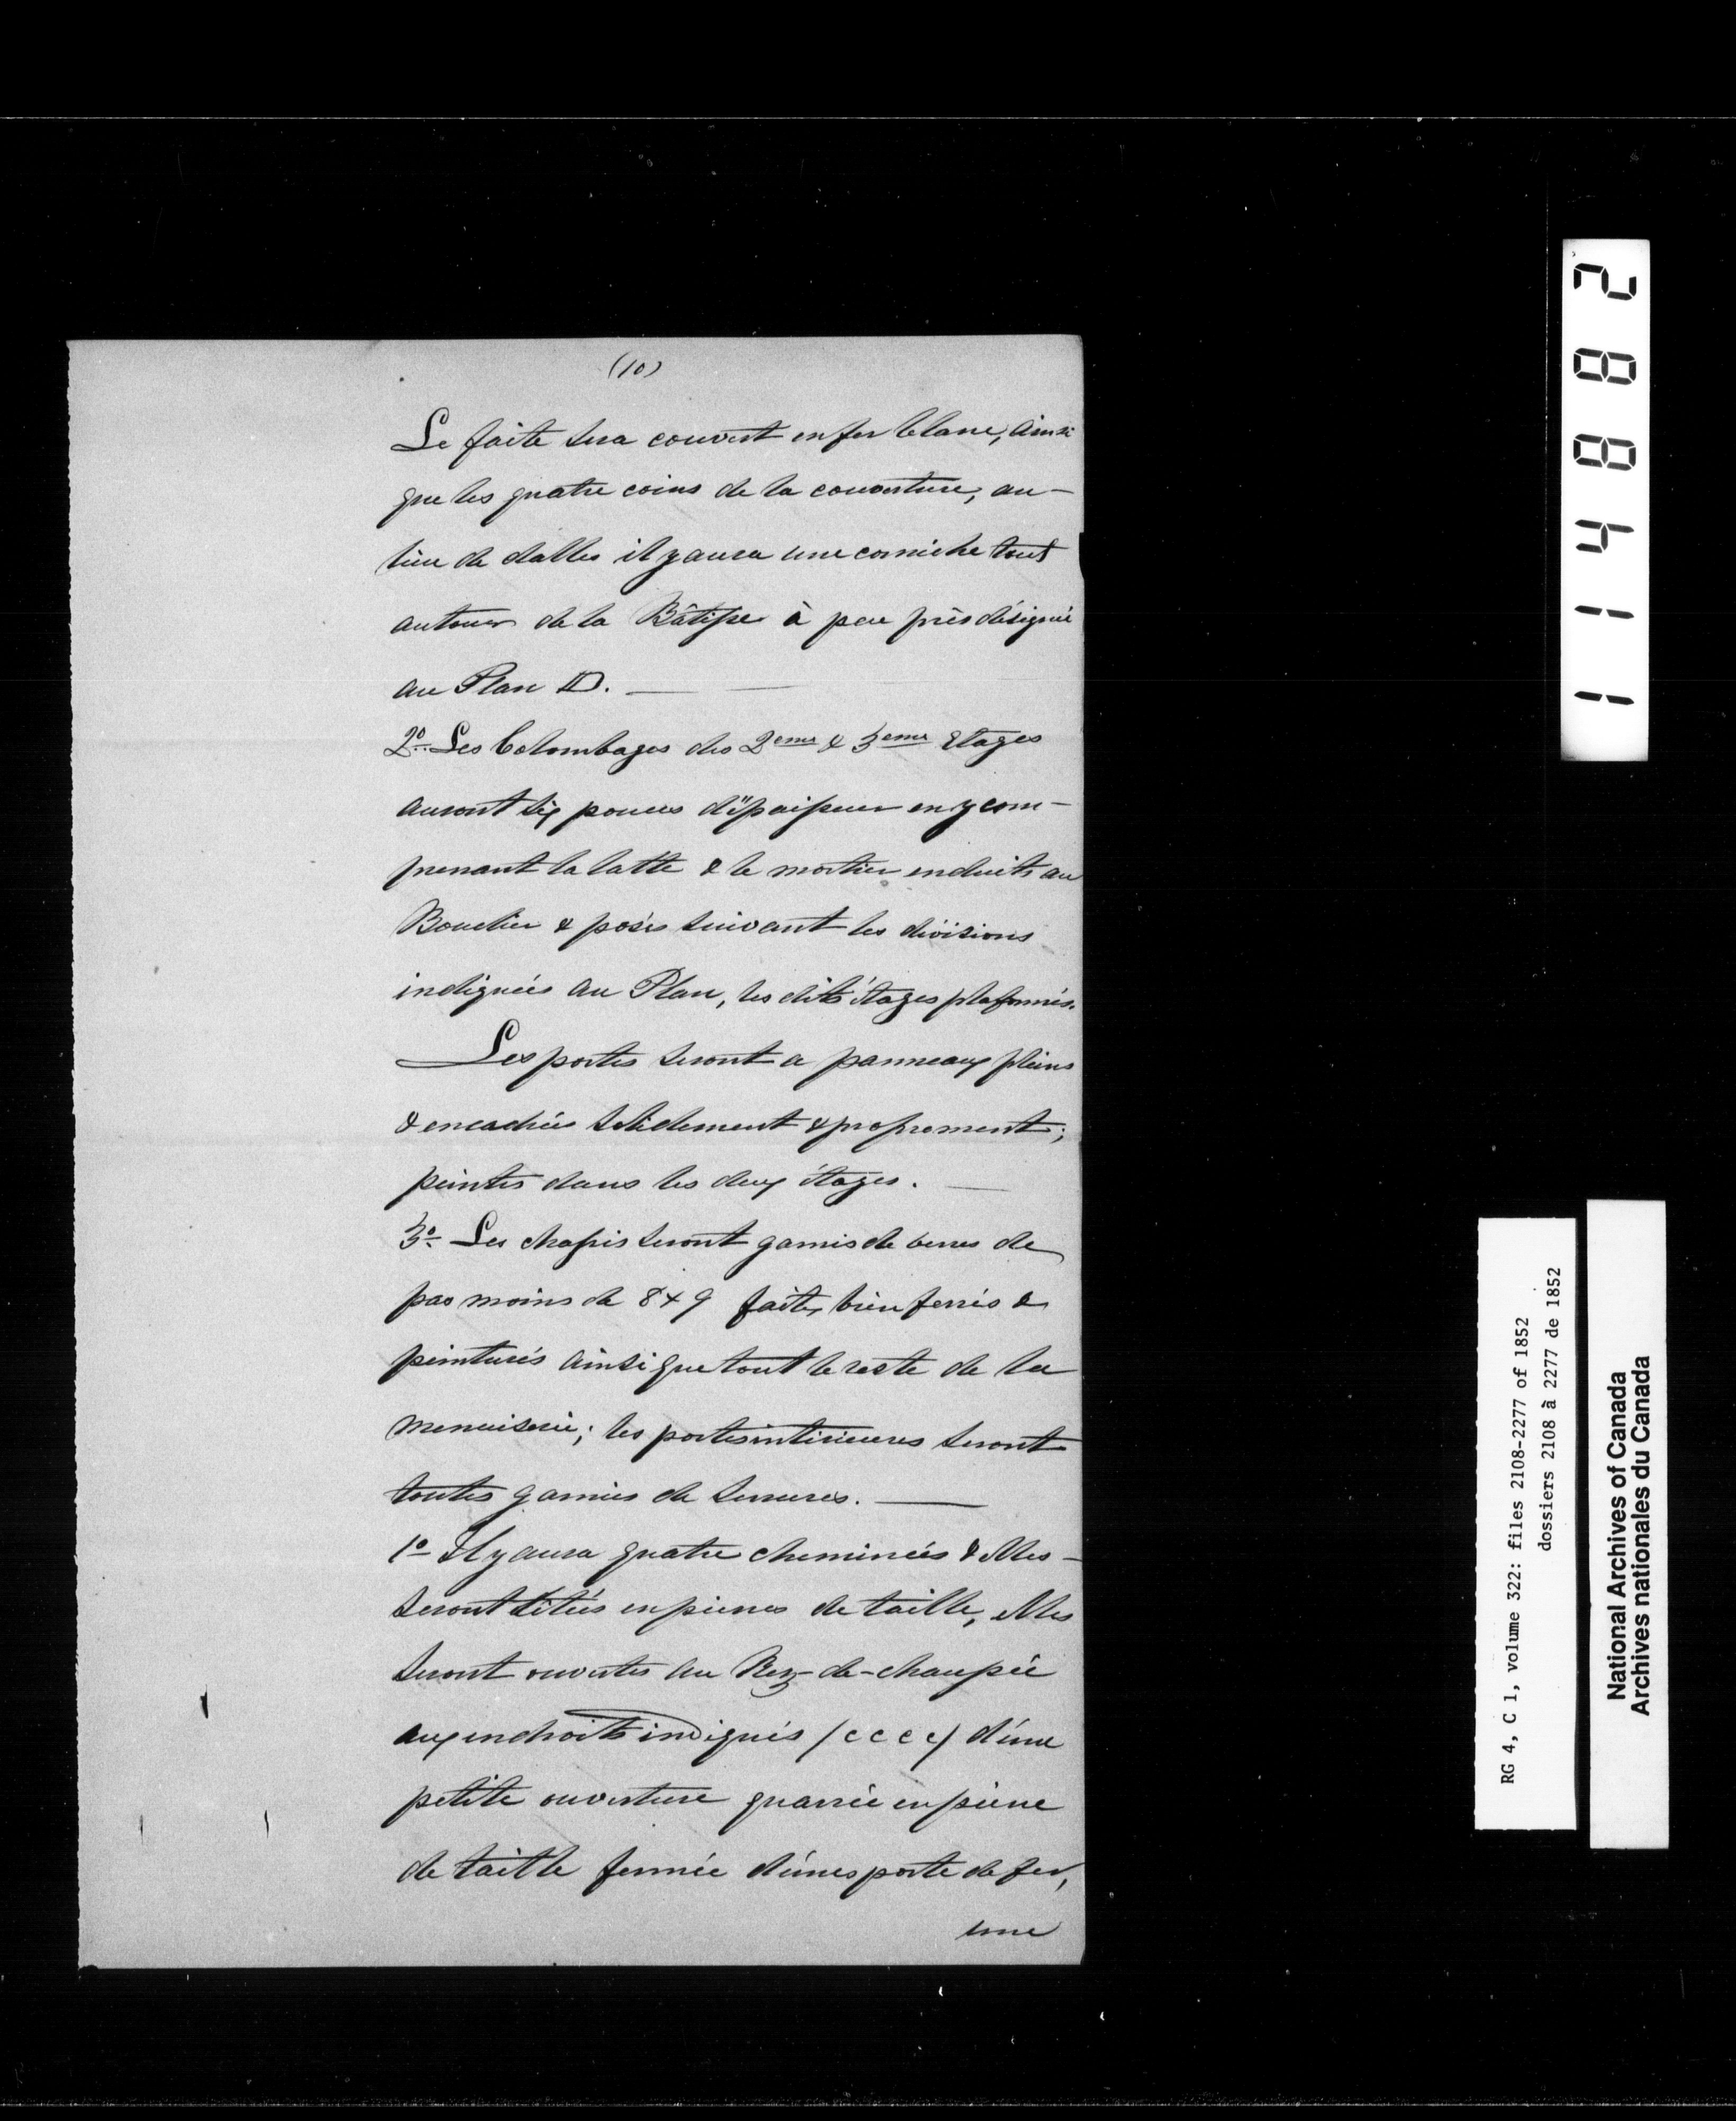 (10)
Le faite sera couvert en fer blanc, ainsi
que les quatre coins de la couverture, au-
lieu de dalles il y aura une corniche tout
autour de la Bâtisse à peu près désigné
au Plan D.
2º Les Colombages des 2eme & 3eme Etages
auront six pouces d'épaisseur en y com-
prenant la latte & le mortier enduits au
Bouclier & posés suivant les divisions
indiquées au Plan, les dits étages plafonnés.
Les portes seront a panneaux pleins
& encadrées solidement & proprement;
peintes dans les deux étages.
3º Les chassis seront garnis de verres de
pas moins de 8 x 9 faits, bien ferrés &
peinturés ainsi que tout le reste de la
menuiserie; les portes intérieures seront
toutes garnies de serrures.
1º Il y aura quatre cheminées & elles
seront têtées en pierres de taille, elles
seront ouvertes au Rez-de-chaussée
aux endroits indiqués (c c c c) d'une
petite ouverture quarrée en pierre
de taille fermée d'une porte de fer,
une
114882
RG 4, C 1, volume 322: files 2108-2277 of 1852
dossiers 2108 à 2277 de 1852
National Archives of Canada
Archives nationales du Canada